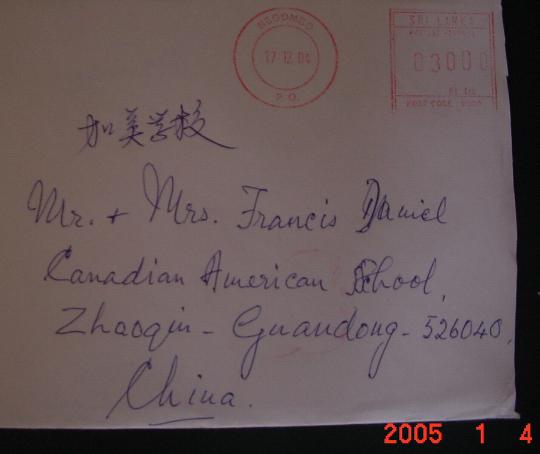 NEGOMBO
17.12.04
P.O.
SRI LANKA
03000
加美学校
Mr. + Mrs. Francis Daniel
Canadian American School,
Zhaoqin - Guandong - 526040,
China.
2005 1 4